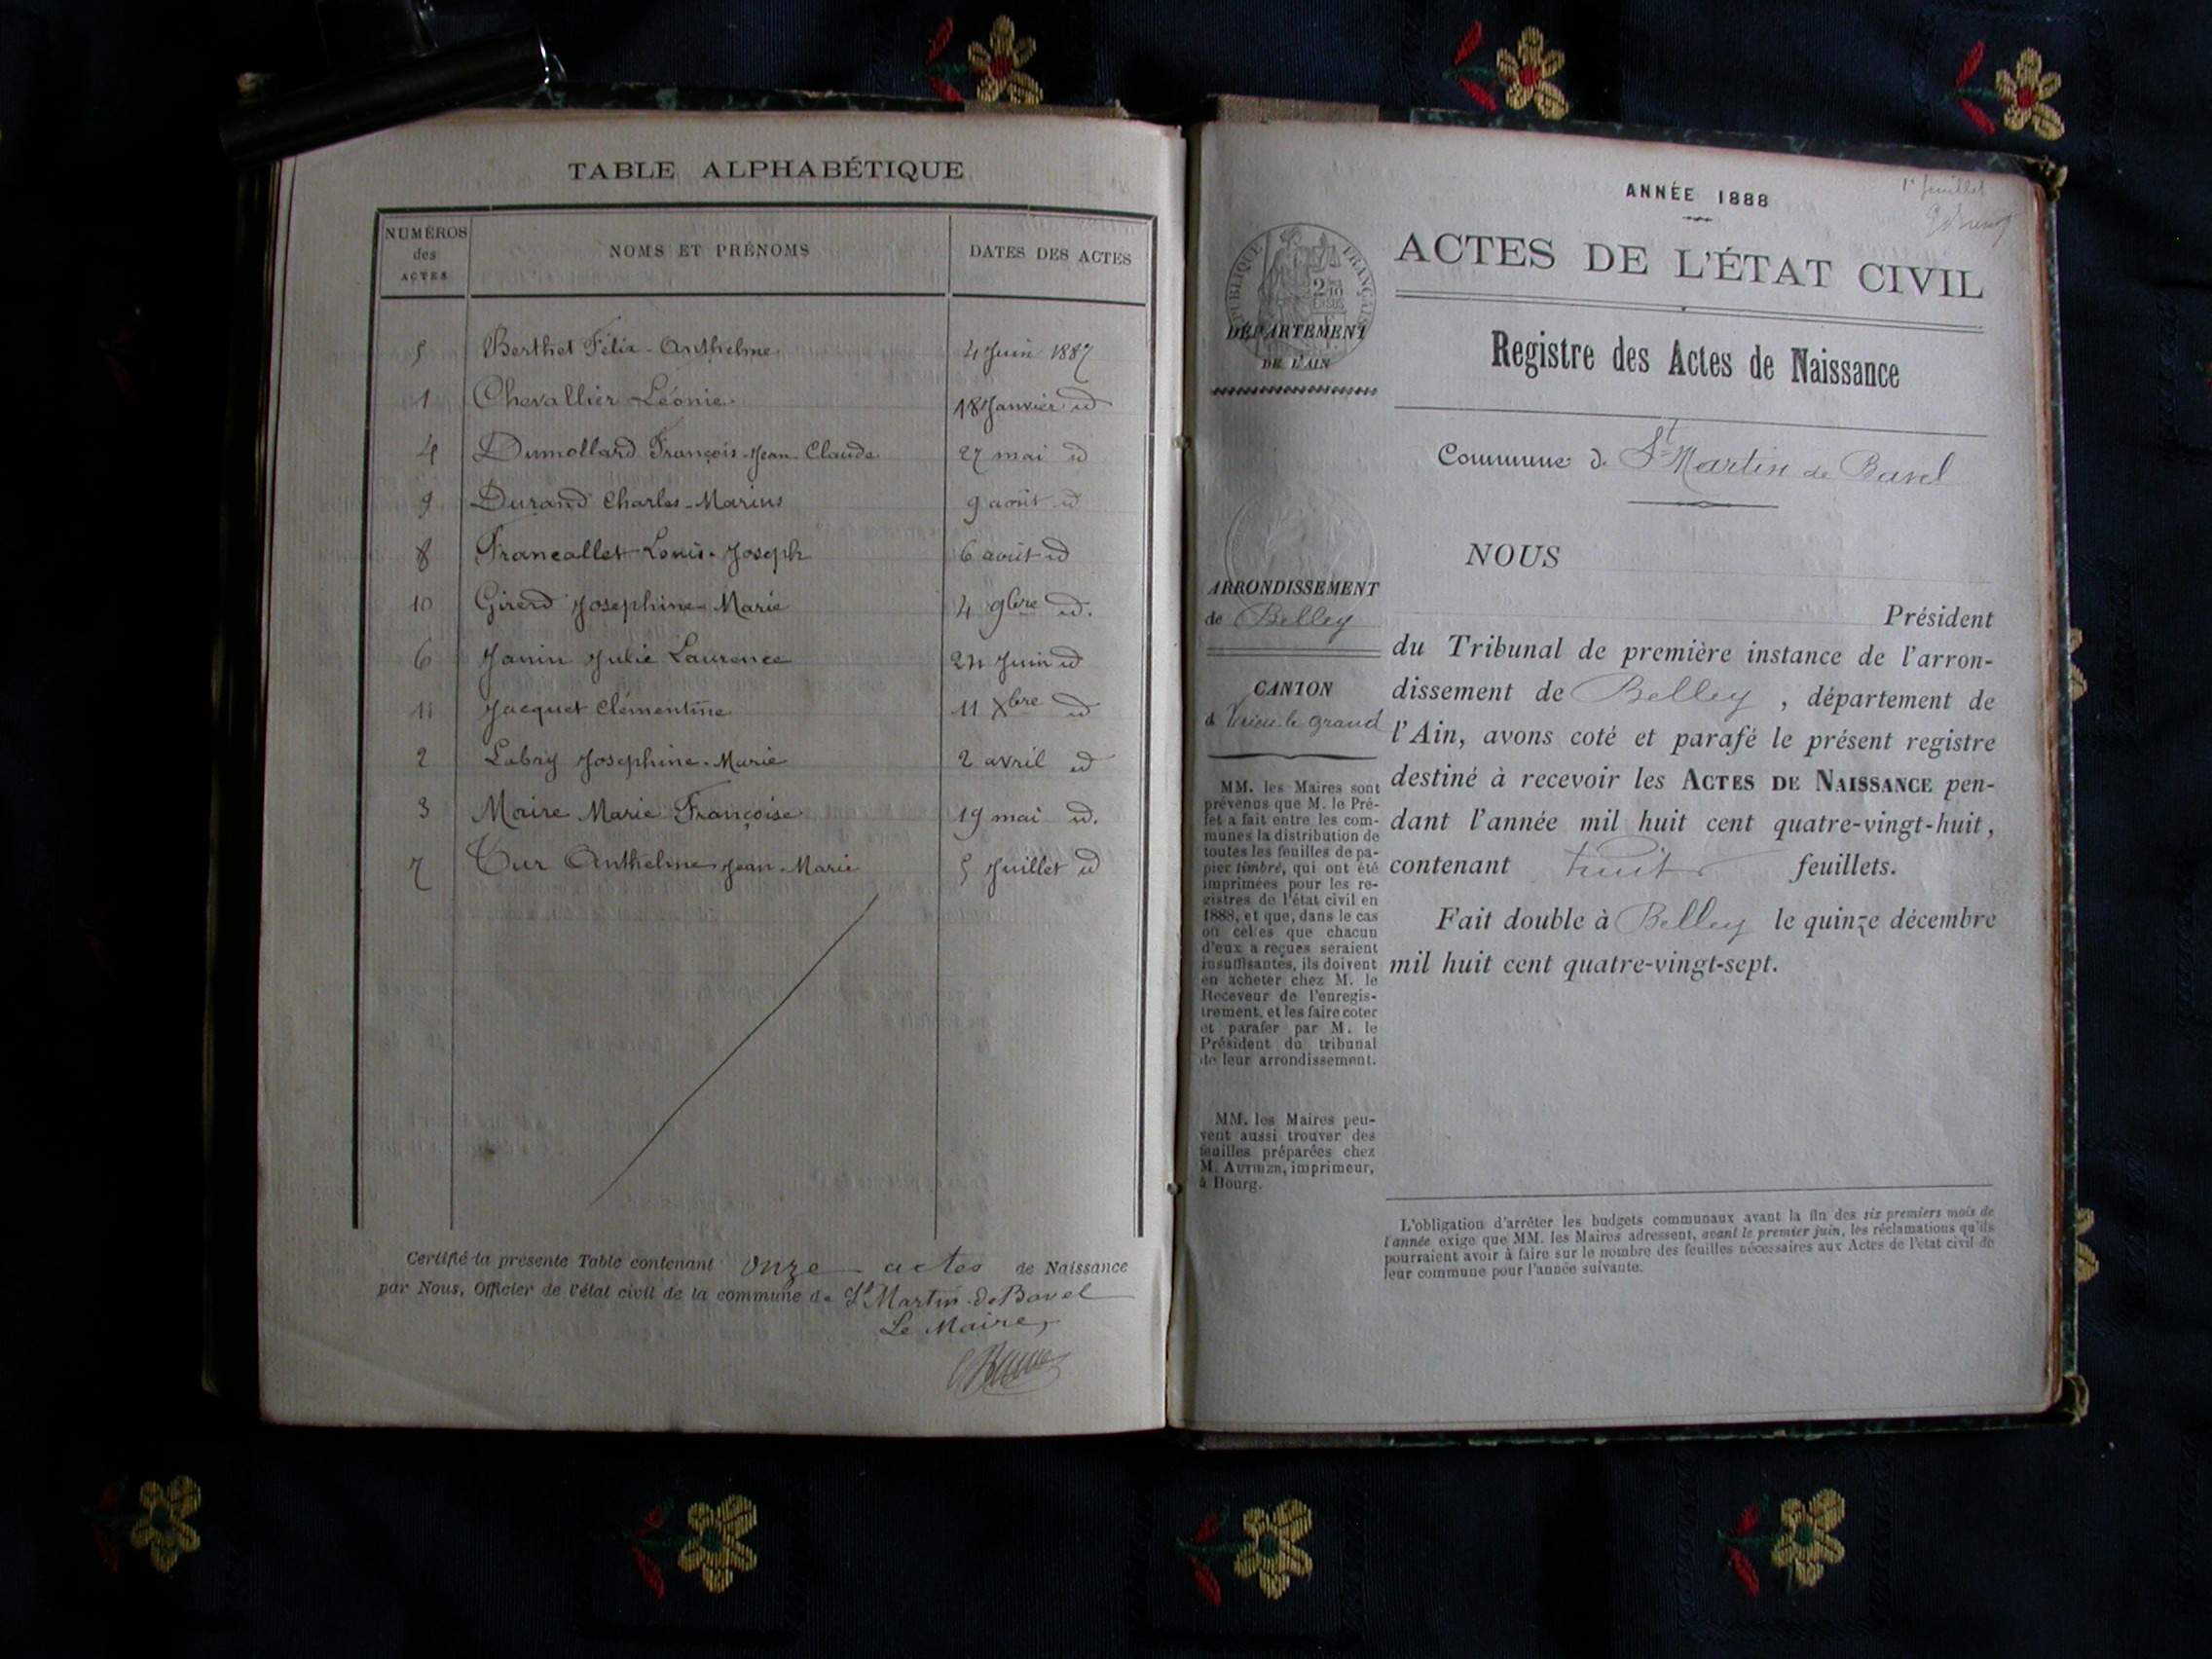 TABLE ALPHABÉTIQUE
NUMÉROS des ACTES
NOMS ET PRÉNOMS
DATES DES ACTES
5 Berthet Félix-Anthelme 4 Juin 1887
1 Chevallier Léonie 18 Janvier id
4 Dumollard François-Jean-Claude 27 mai id
9 Durand Charles-Marius 9 août id
8 Francallet Louis-Joseph 6 août id
10 Girerd Josephine Marie 4 9bre id.
6 Janin Julie Laurence 24 Juin id
11 Jacquet Clémentine 11 Xbre id
2 Labry Josephine-Marie 2 avril id
3 Maire Marie Françoise 19 mai id.
7 Tur Anthelme Jean-Marie 5 Juillet id
Certifié la présente Table contenant onze actes de Naissance
par Nous, Officier de l'état civil de la commune de St Martin-de Bavel
Le Maire,
1er feuillet
ANNÉE 1888
ACTES DE L'ÉTAT CIVIL
Registre des Actes de Naissance
Commune de St Martin de Bavel
RÉPUBLIQUE FRANÇAISE
2/10 EN SUS
DÉPARTEMENT
DE L'AIN
ARRONDISSEMENT
de Belley
CANTON
d Virieu le grand
MM. les Maires sont
prévenus que M. le Pré-
fet a fait entre les com-
munes la distribution de
toutes les feuilles de pa-
pier timbré, qui ont été
imprimées pour les re-
gistres de l'état civil en
1888, et que, dans le cas
où celles que chacun
d'eux a reçues seraient
insuffisantes, ils doivent
en acheter chez M. le
Receveur de l'enregis-
trement, et les faire coter
et parafer par M. le
Président du tribunal
de leur arrondissement.
MM. les Maires peu-
vent aussi trouver des
feuilles préparées chez
M. AUTHIER, imprimeur,
à Bourg.
NOUS
Président
du Tribunal de première instance de l'arron-
dissement de Belley, département de
l'Ain, avons coté et parafé le présent registre
destiné à recevoir les ACTES DE NAISSANCE pen-
dant l'année mil huit cent quatre-vingt-huit,
contenant huit feuillets.
Fait double à Belley le quinze décembre
mil huit cent quatre-vingt-sept.
L'obligation d'arrêter les budgets communaux avant la fin des six premiers mois de
l'année exige que MM. les Maires adressent, avant le premier juin, les réclamations qu'ils
pourraient avoir à faire sur le nombre des feuilles nécessaires aux Actes de l'état civil de
leur commune pour l'année suivante.